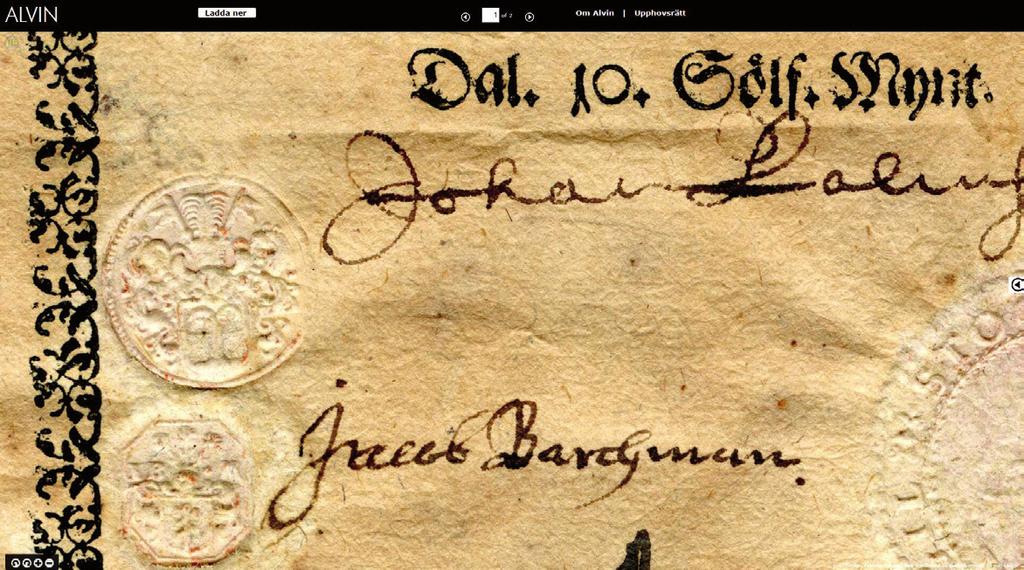 ALVIN
Ladda ner
1 of 2
Om Alvin | Upphovsrätt
Dal. 10. Sölf. Mynt.
Johan
Jacob Barchman.
STO